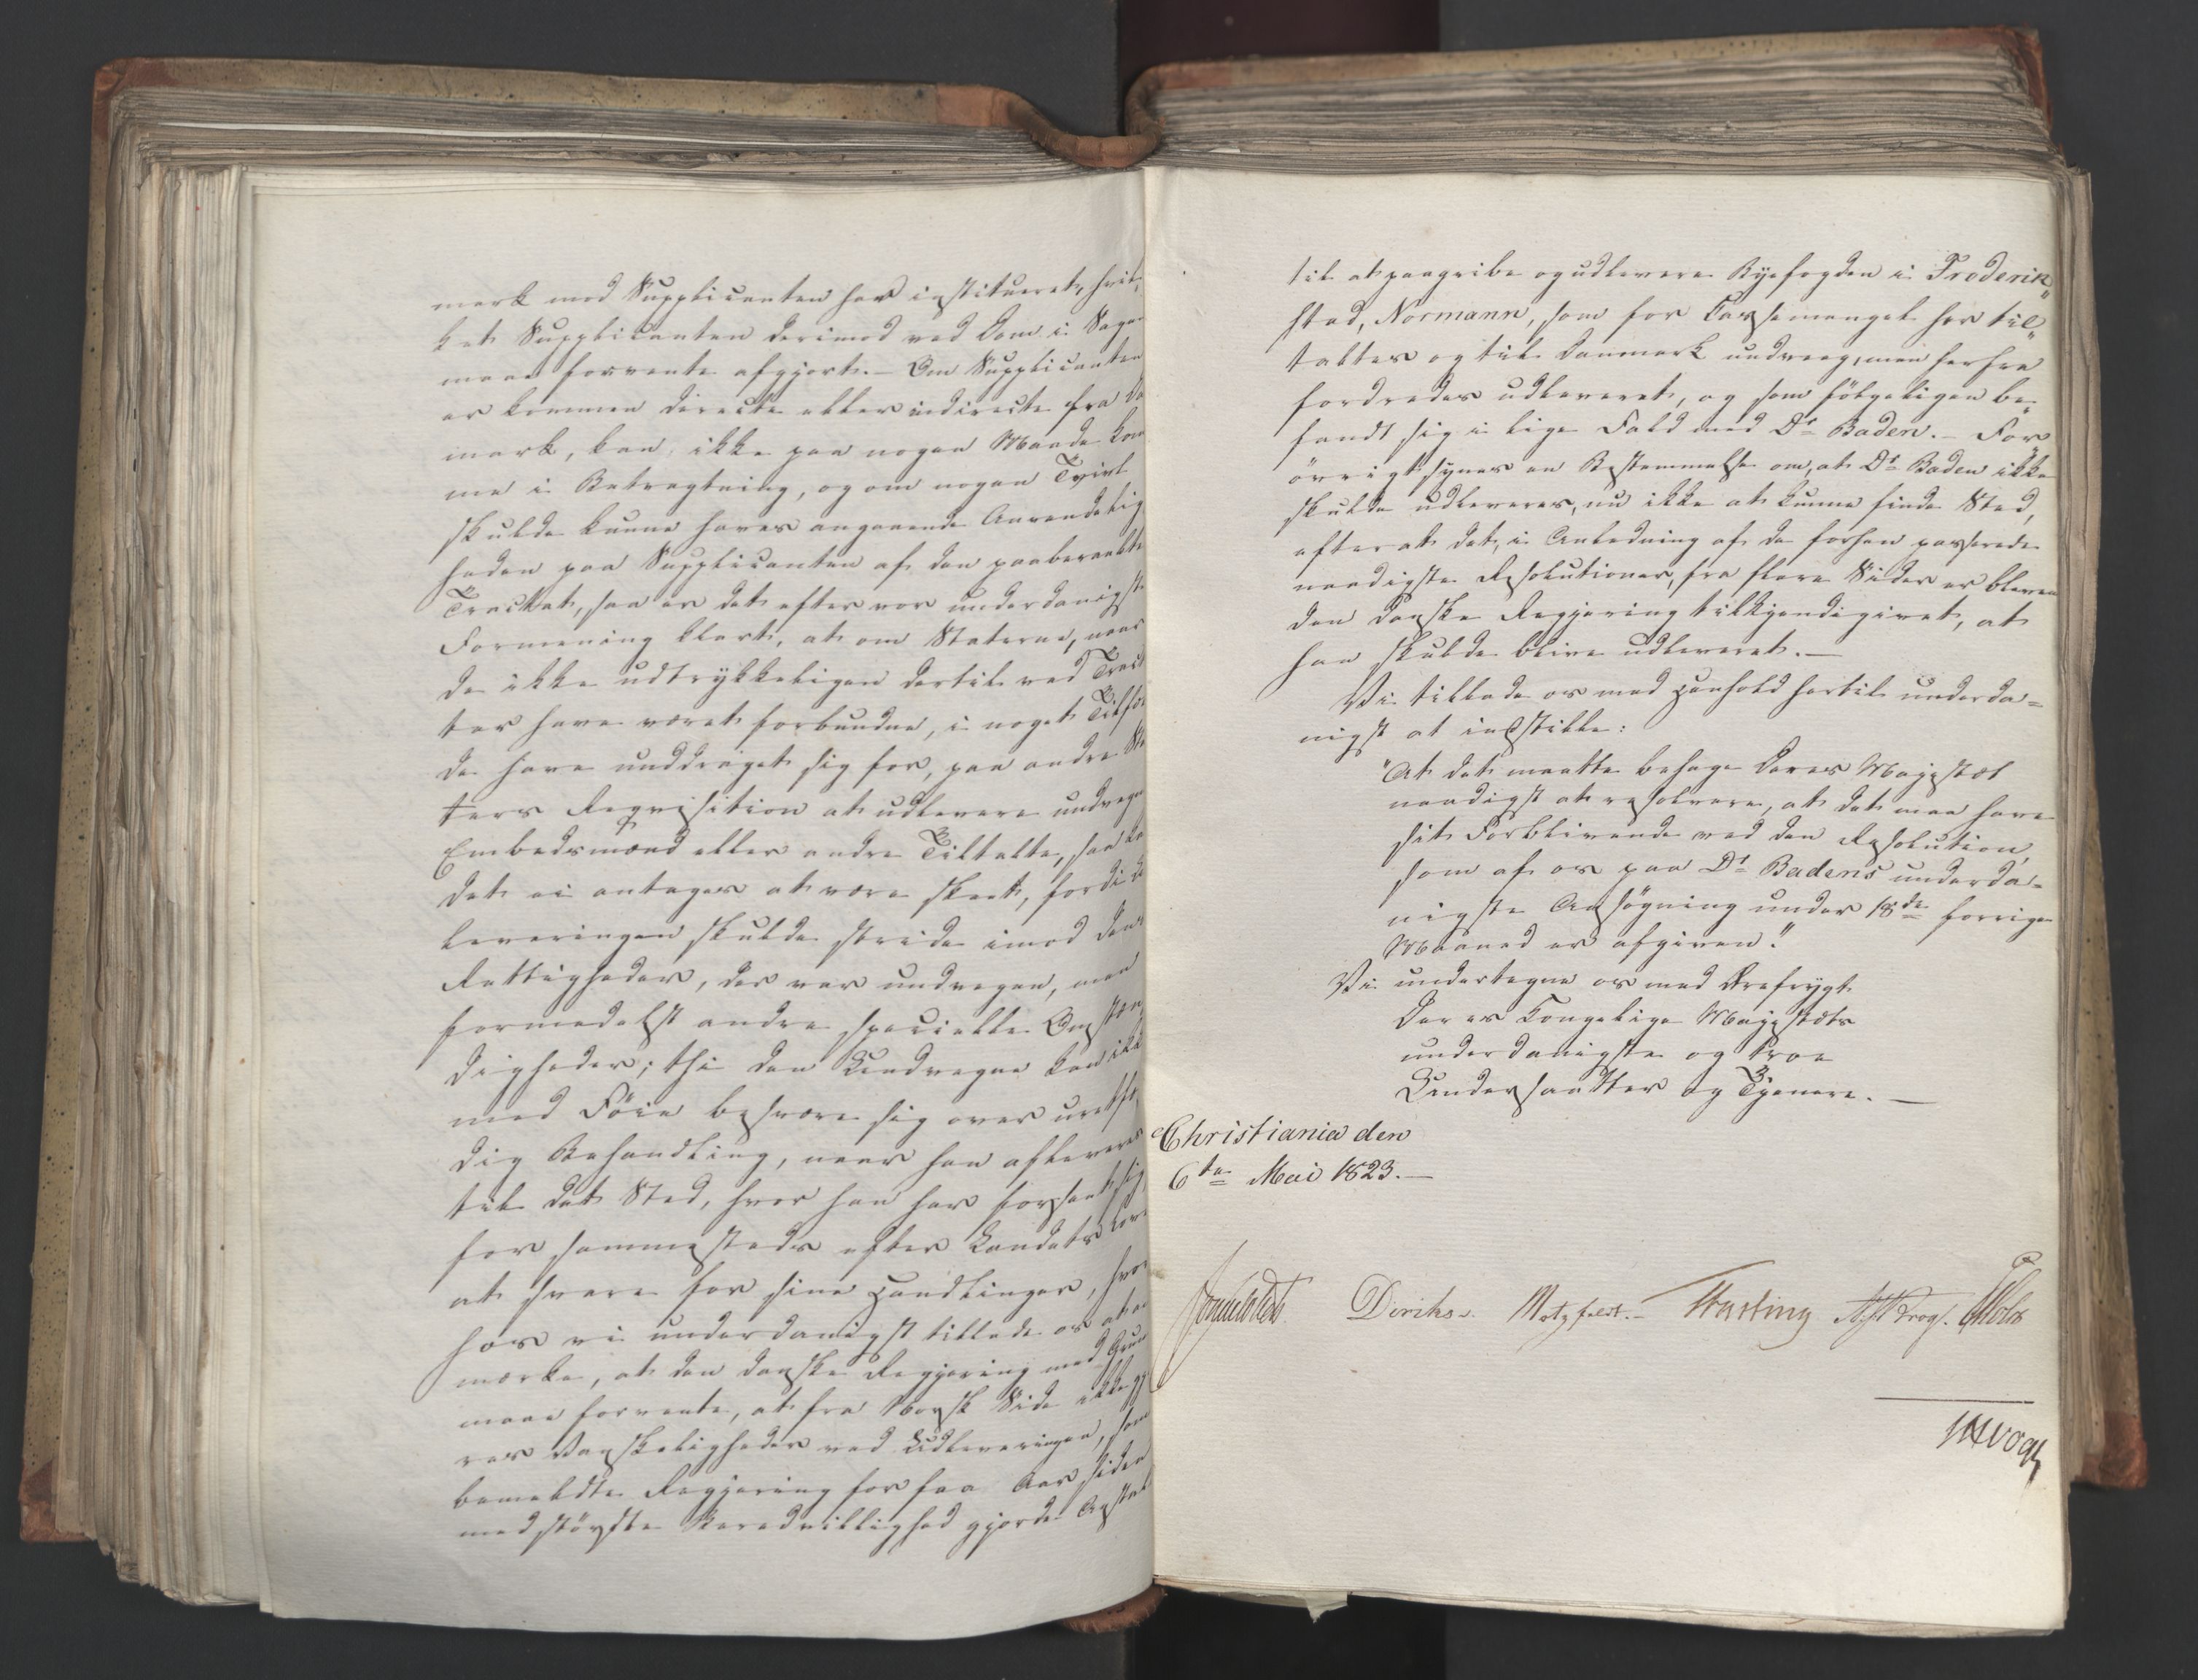 mark mod Supplicanten har institueret, hvil„
ket Supplicanten derimod ved Dom i Sagen
maae forvente afgjort. – Om Supplicanten
er kommen directe eller indirecte fra Da
mark, kan ikke paa nogen Maade kom
me i Betragtning, og om nogen Tvivl
skulde kunne haves angaaende Anvendelig
heden paa Supplicanten af den paaberaabte
Tractat, saa er det efter vor underdanigste
Formening klart, at om Staterne, naar
de ikke udtrykkeligen dertil ved Tract
ter have været forbundne, i noget Tilfæ
de have unddraget sig for, paa andre Sta
ters Reqvisition at udlevere undvegne
Embedsmænd eller andre Tiltalte, saa kan
det ei antages at være skeet, fordi Ud
leveringen skulde stride imod dens
Rettigheder, der var undvegen, men
formedelst andre specielle Omstæn
digheder; thi den Undvegne kan ikke
med Föie besvære sig over uretfær
dig Behandling, naar han afleveres
til det Sted, hvor han har forseet sig,
for sammesteds efter Landets Love
at svare for sine Handlinger, hvor
hos vi underdanigst tillade os at be
mærke, at den danske Regjering med Grund
maae forvente, at fra Norsk Side ikke gjö
res Vanskeligheder ved Udleveringen, som
bemeldte Regjering for faa Aar siden
med störste Beredvillighed gjorde Anstalt
til at paagribe og udlevere Byefogden i Frederik„
stad, Normann, som for Cassemangel her til„
taltes og til Danmark undveeg, men herfra
fordredes udleveret, og som fölgeligen be„
fandt sig i lige Fald med Dr Baden. – For„
övrigt synes en Bestemmelse om, at Dr Baden ikke
skulde udleveres, nu ikke at kunne finde Sted,
efterat det, i Anledning af de forhen passerede
naadigste Resolutioner, fra flere Sider er bleven
den danske Regjering tilkjendegivet, at
han skulde blive udleveret. —
Vi tillade os med Henhold hertil underda=
nigst at indstille:
"At det maatte behage Deres Majestæt
naadigst at resolvere, at det maa have
sit Forblivende ved den Resolution,
som af os paa Dr Badens underda=
nigste Ansögning under 18de forrige
Maaned er afgiven."
Vi undertegne os med Ærefrygt
Deres Kongelige Majestæts
underdanigste og troe
Undersaatter og Tjenere. —
Christiania den
6te Mai 1823. —
Sommerhielm. Diriks. Motzfeldt. – Fasting AHKrog. Holst
JHVogt